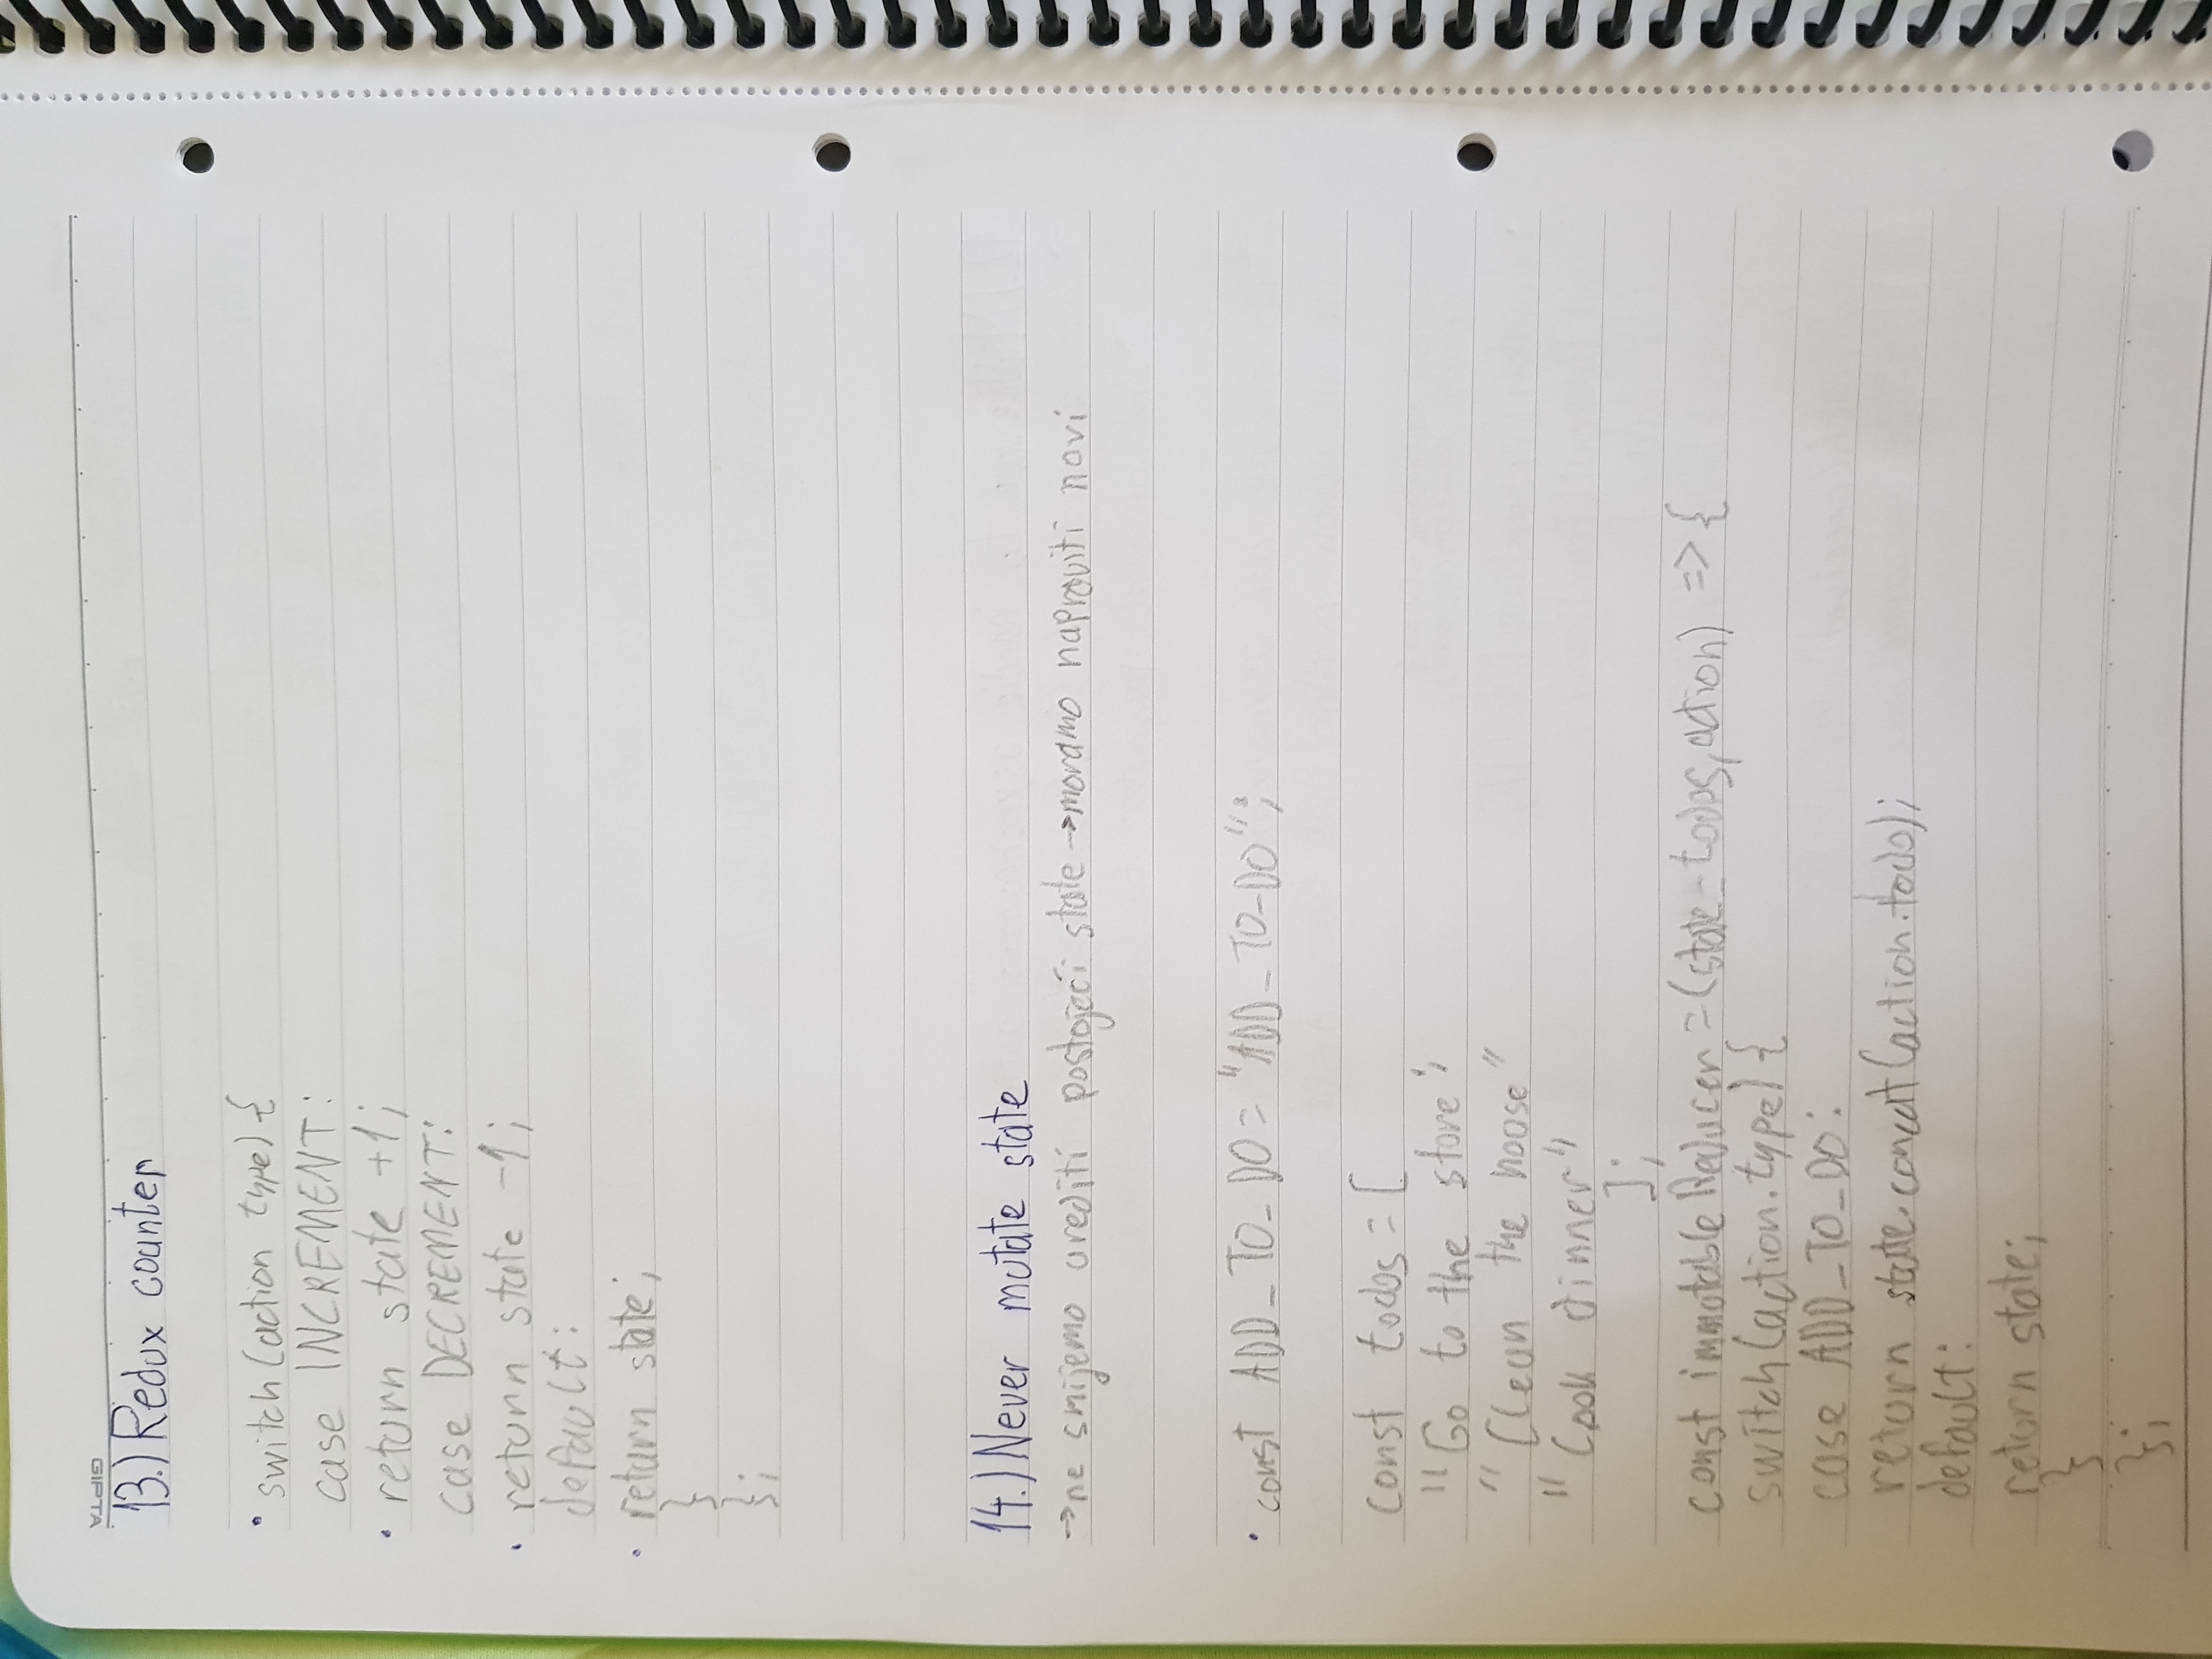 GIPTA
13.) Redux counter
• switch (action type) {
case INCREMENT:
• return state +1;
case DECREMENT:
• return state -1;
default:
• return state;
}
};
14.) Never mutate state
→ne smijemo urediti postojeći state →moramo napraviti novi
• const ADD_TO_DO = "ADD_TO_DO";
const todos = [
"Go to the store",
"Clean the house"
"Cook dinner"
];
const immutableReducer = (state = todos, action) => {
switch (action.type) {
case ADD_TO_DO:
return state.concat (action.todo);
default:
return state;
}
};